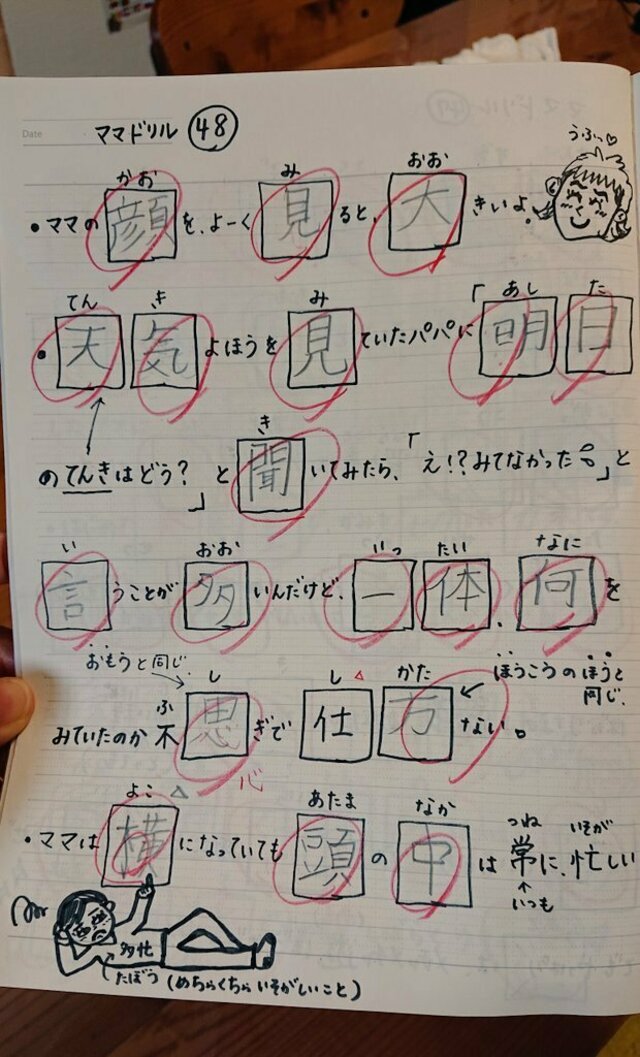 Date
ママドリル 48
うふっ♡
かお み おお
・ママの顔を、よーく見ると、大きいよ。
てん き み あし た
・天気よほうを見ていたパパに「明日
き
のてんきはどう?」と聞いてみたら、「え!?みてなかった」と
い おお いっ たい なに
言うことが多いんだけど、一体、何を
おもうと同じ し し かた ほうこうのほうと同じ.
ふ
みていたのか不思ぎで仕方ない。
心
よこ あたま なか つね いそが
・ママは横になっていても頭の中は常に、忙しい
いつも
多忙
たぼう (めちゃくちゃいそがしいこと)